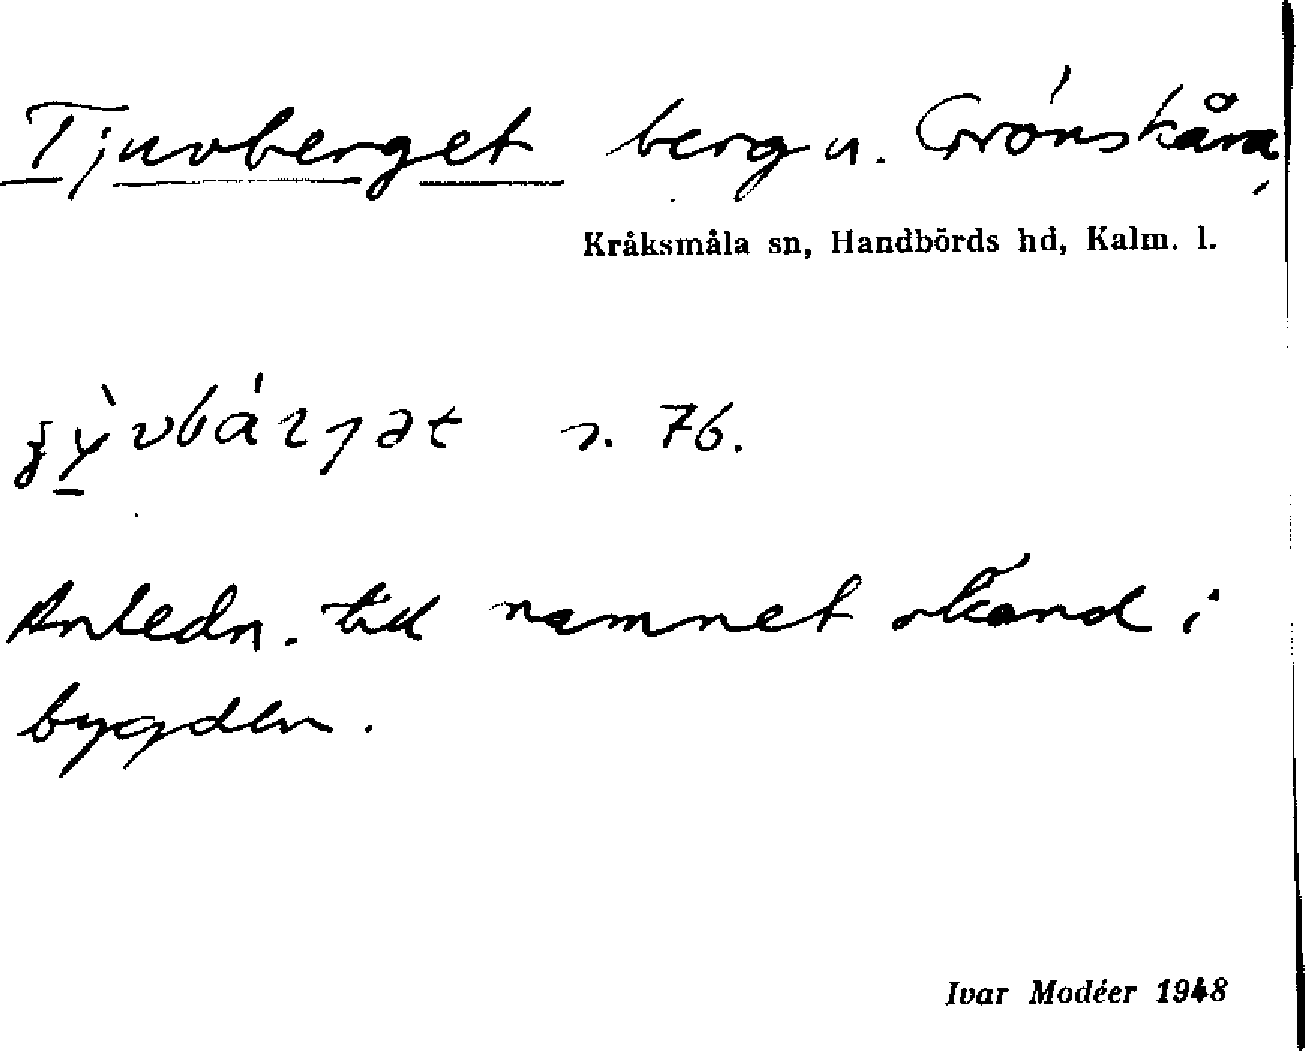 Tjuvberget berg u. Grönskåra,
Kråksmåla sn, Handbörds hd, Kalm. l.
s. 76.
Anledn. till namnet okänd i
bygden.
Ivar Modéer 1948